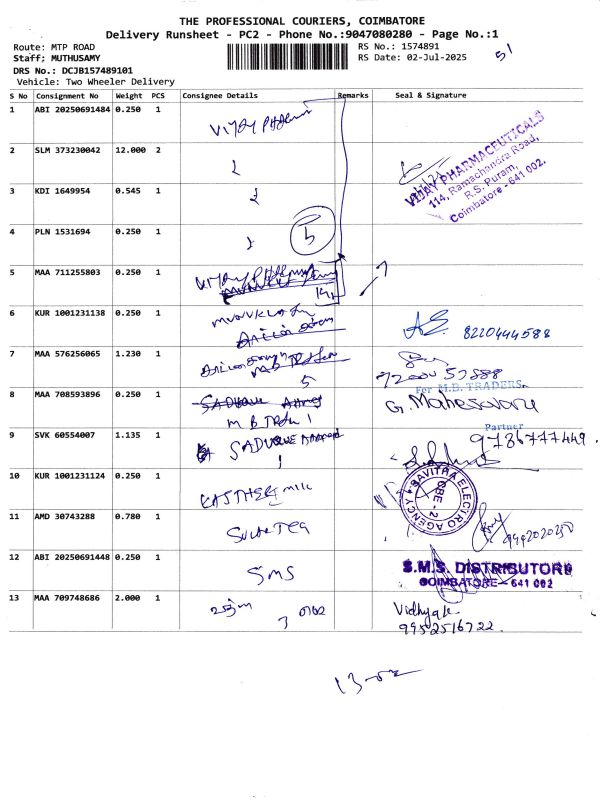 THE PROFESSIONAL COURIERS, COIMBATORE
Delivery Runsheet - PC2 - Phone No.:9047080280 - Page No.:1
Route: MTP ROAD
Staff; MUTHUSAMY
DRS No.: DCJB157489101
Vehicle: Two Wheeler Delivery
RS No.: 1574891
RS Date: 02-Jul-2025
51
S No Consignment No Weight PCS Consignee Details Remarks Seal & Signature
1 ABI 20250691484 0.250 1 VIJAY PHARMA
2 SLM 373230042 12.000 2
VIJAY PHARMACEUTICALS
114, Ramachandra Road,
R.S. Puram,
Coimbatore - 641 002.
3 KDI 1649954 0.545 1
4 PLN 1531694 0.250 1 5
5 MAA 711255803 0.250 1 VIJAY
6 KUR 1001231138 0.250 1 8220444588
7 MAA 576256065 1.230 1 M B
5
8 MAA 708593896 0.250 1 SADUQUE
M B
For M.B. TRADERS,
G. Maheswari
Partner
9 SVK 60554007 1.135 1 SADUQUE
9786777449
10 KUR 1001231124 0.250 1
SAVITRA ELECTRO AGENCY
CBE - 2
11 AMD 30743288 0.780 1
12 ABI 20250691448 0.250 1 SMS
S.M.S. DISTRIBUTORS
COIMBATORE - 641 002
13 MAA 709748686 2.000 1
Vidhya
9952516722